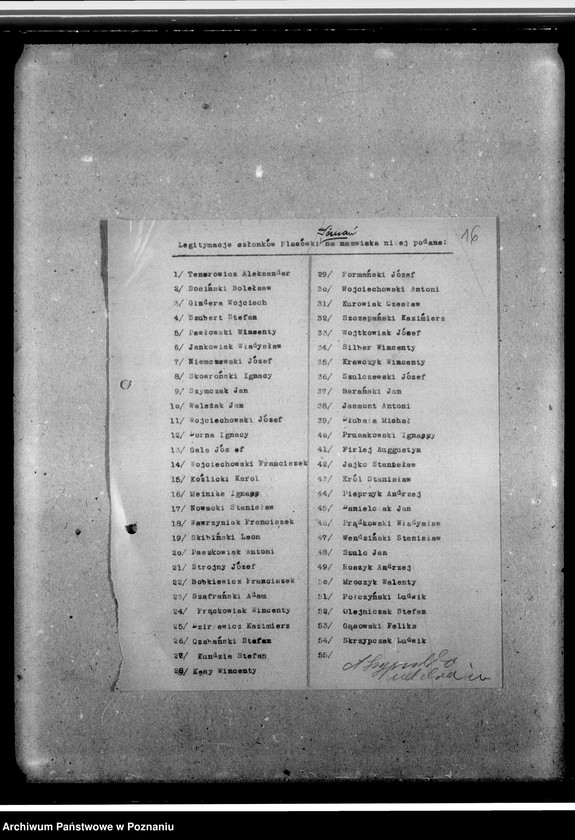 16
Legitymacje członków Placówki na nazwiska niżej podane:
1/ Tenerowicz Aleksander
2/ Bosiński Bolesław
3/ Gindera Wojciech
4/ Szubert Stefan
5/ Pawłowski Wincenty
6/ Jankowiak Władysław
7/ Niemczewski Józef
8/ Skowroński Ignacy
9/ Szymczak Jan
10/ Wależak Jan
11/ Wojciechowski Józef
12/ Dorna Ignacy
13/ Gala Józef
14/ Wojciechowski Franciszek
15/ Koźlicki Karol
16/ Meinike Ignacy
17/ Nowacki Stanisław
18/ Wawrzyniak Franciszek
19/ Skibiński Leon
20/ Paszkowiak Antoni
21/ Strojny Józef
22/ Bobkiewicz Franciszek
23/ Szafrański Adam
24/ Frąckowiak Wincenty
25/ Kazimierz
26/ Czabański Stefan
27/ Kundzia Stefan
28/ Kęsy Wincenty
29/ Formański Józef
30/ Wojciechowski Antoni
31/ Kurowiak Czesław
32/ Szczepański Kazimierz
33/ Wojtkowiak Józef
34/ Silber Wincenty
35/ Krawczyk Wincenty
36/ Szulczewski Józef
37/ Barański Jan
38/ Jasmont Antoni
39/ Dłubała Michał
40/ Prusakowski Ignappy
41/ Firlej Auggustyn
42/ Jajko Stanisław
43/ Król Stanisław
44/ Pieprzyk Andrzej
45/ Danielczak Jan
46/ Prądkowski Władysław
47/ Wendziński Stanisław
48/ Szulc Jan
49/ Roszyk Andrzej
50/ Mroczyk Walenty
51/ Połczyński Ludwik
52/ Olejniczak Stefan
53/ Gąsowski Feliks
54/ Skrzypczak Ludwik
55/
Archiwum Państwowe w Poznaniu